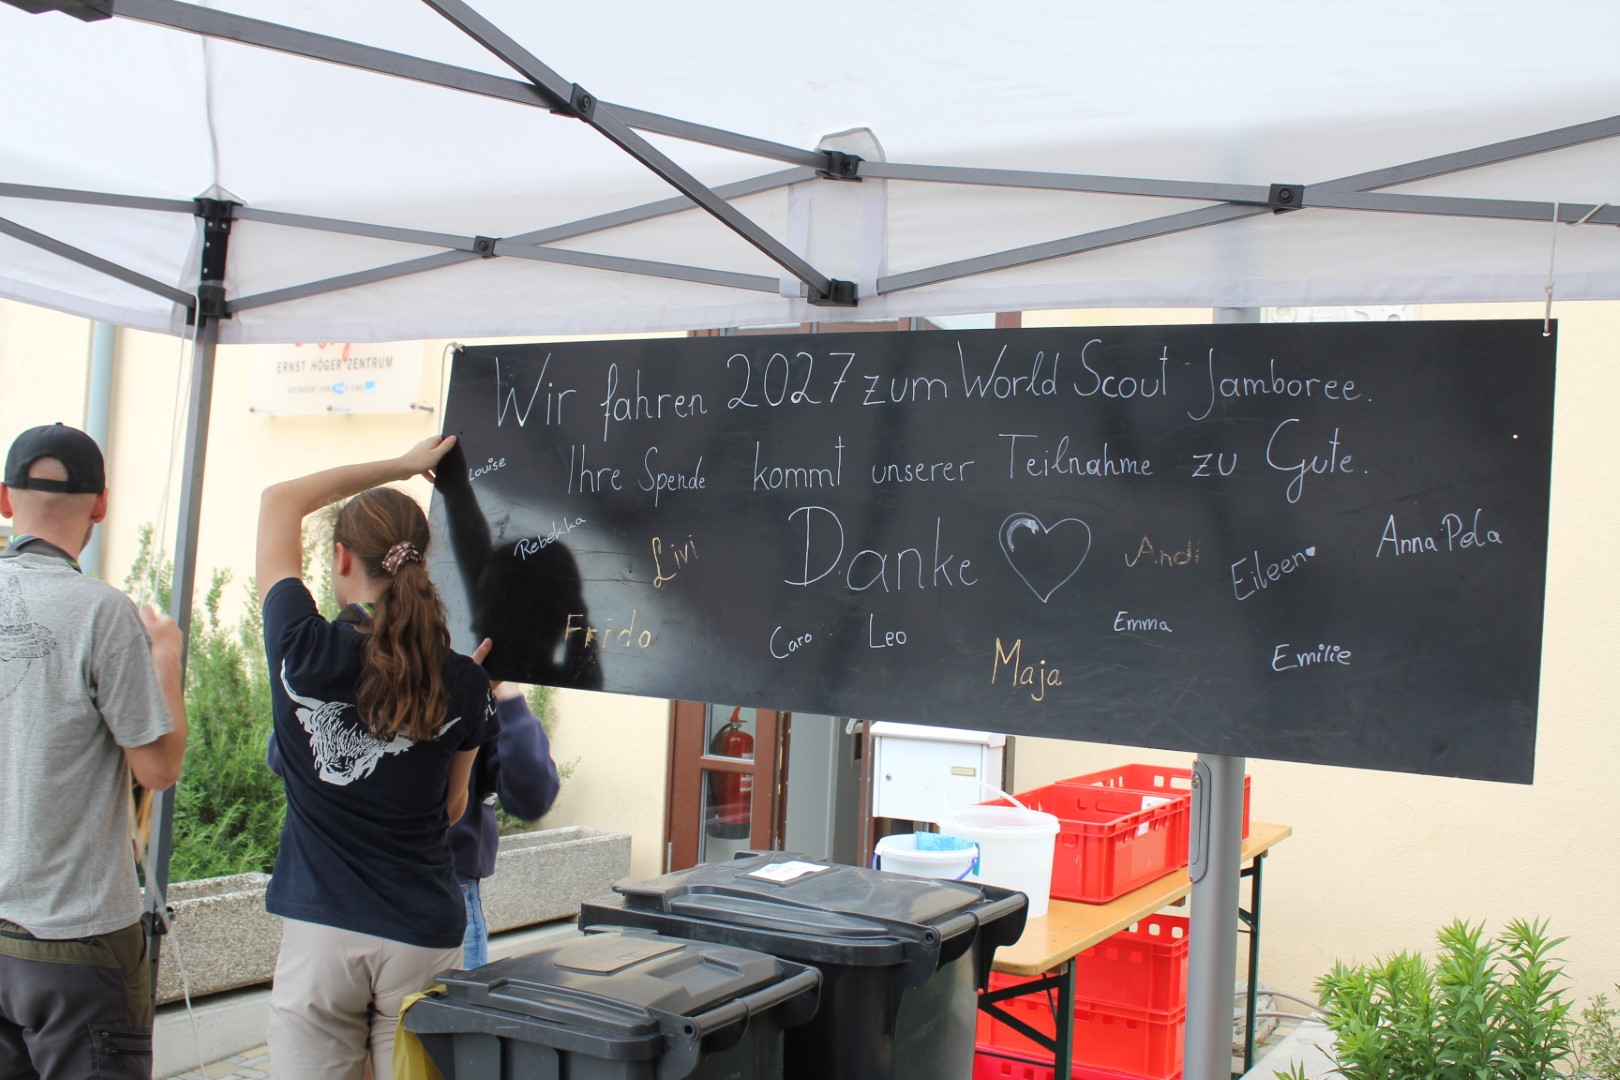 ERNST HÖGER ZENTRUM
Wir fahren 2027 zum World Scout Jamboree.
Ihre Spende kommt unserer Teilnahme zu Gute.
Danke
Louise
Rebekka
Livi
Andi
Eileen
Anna Pela
Frido
Caro
Leo
Maja
Emma
Emilie